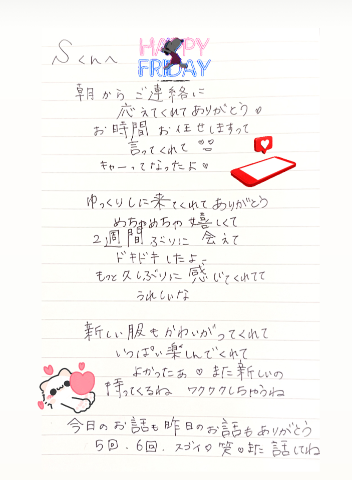 Sくんへ
HAPPY
FRIDAY
朝から ご連絡に
応えてくれて ありがとう♡
お時間 お任せしますって
言ってくれて
キャーってなったよ♡
ゆっくりしに来てくれて ありがとう
めちゃめちゃ 嬉しくて
2週間ぶりに 会えて
ドキドキしたよ、
もっと久しぶりに 感じてくれてて
うれしいな
新しい服も かわいがってくれて
いっぱい楽しんでくれて
よかったぁ♡ また新しいの
持ってくるね ワクワクしちゃうね
今日のお話も 昨日のお話も ありがとう
5回、6回、スゴイ♡笑♡また 話してね